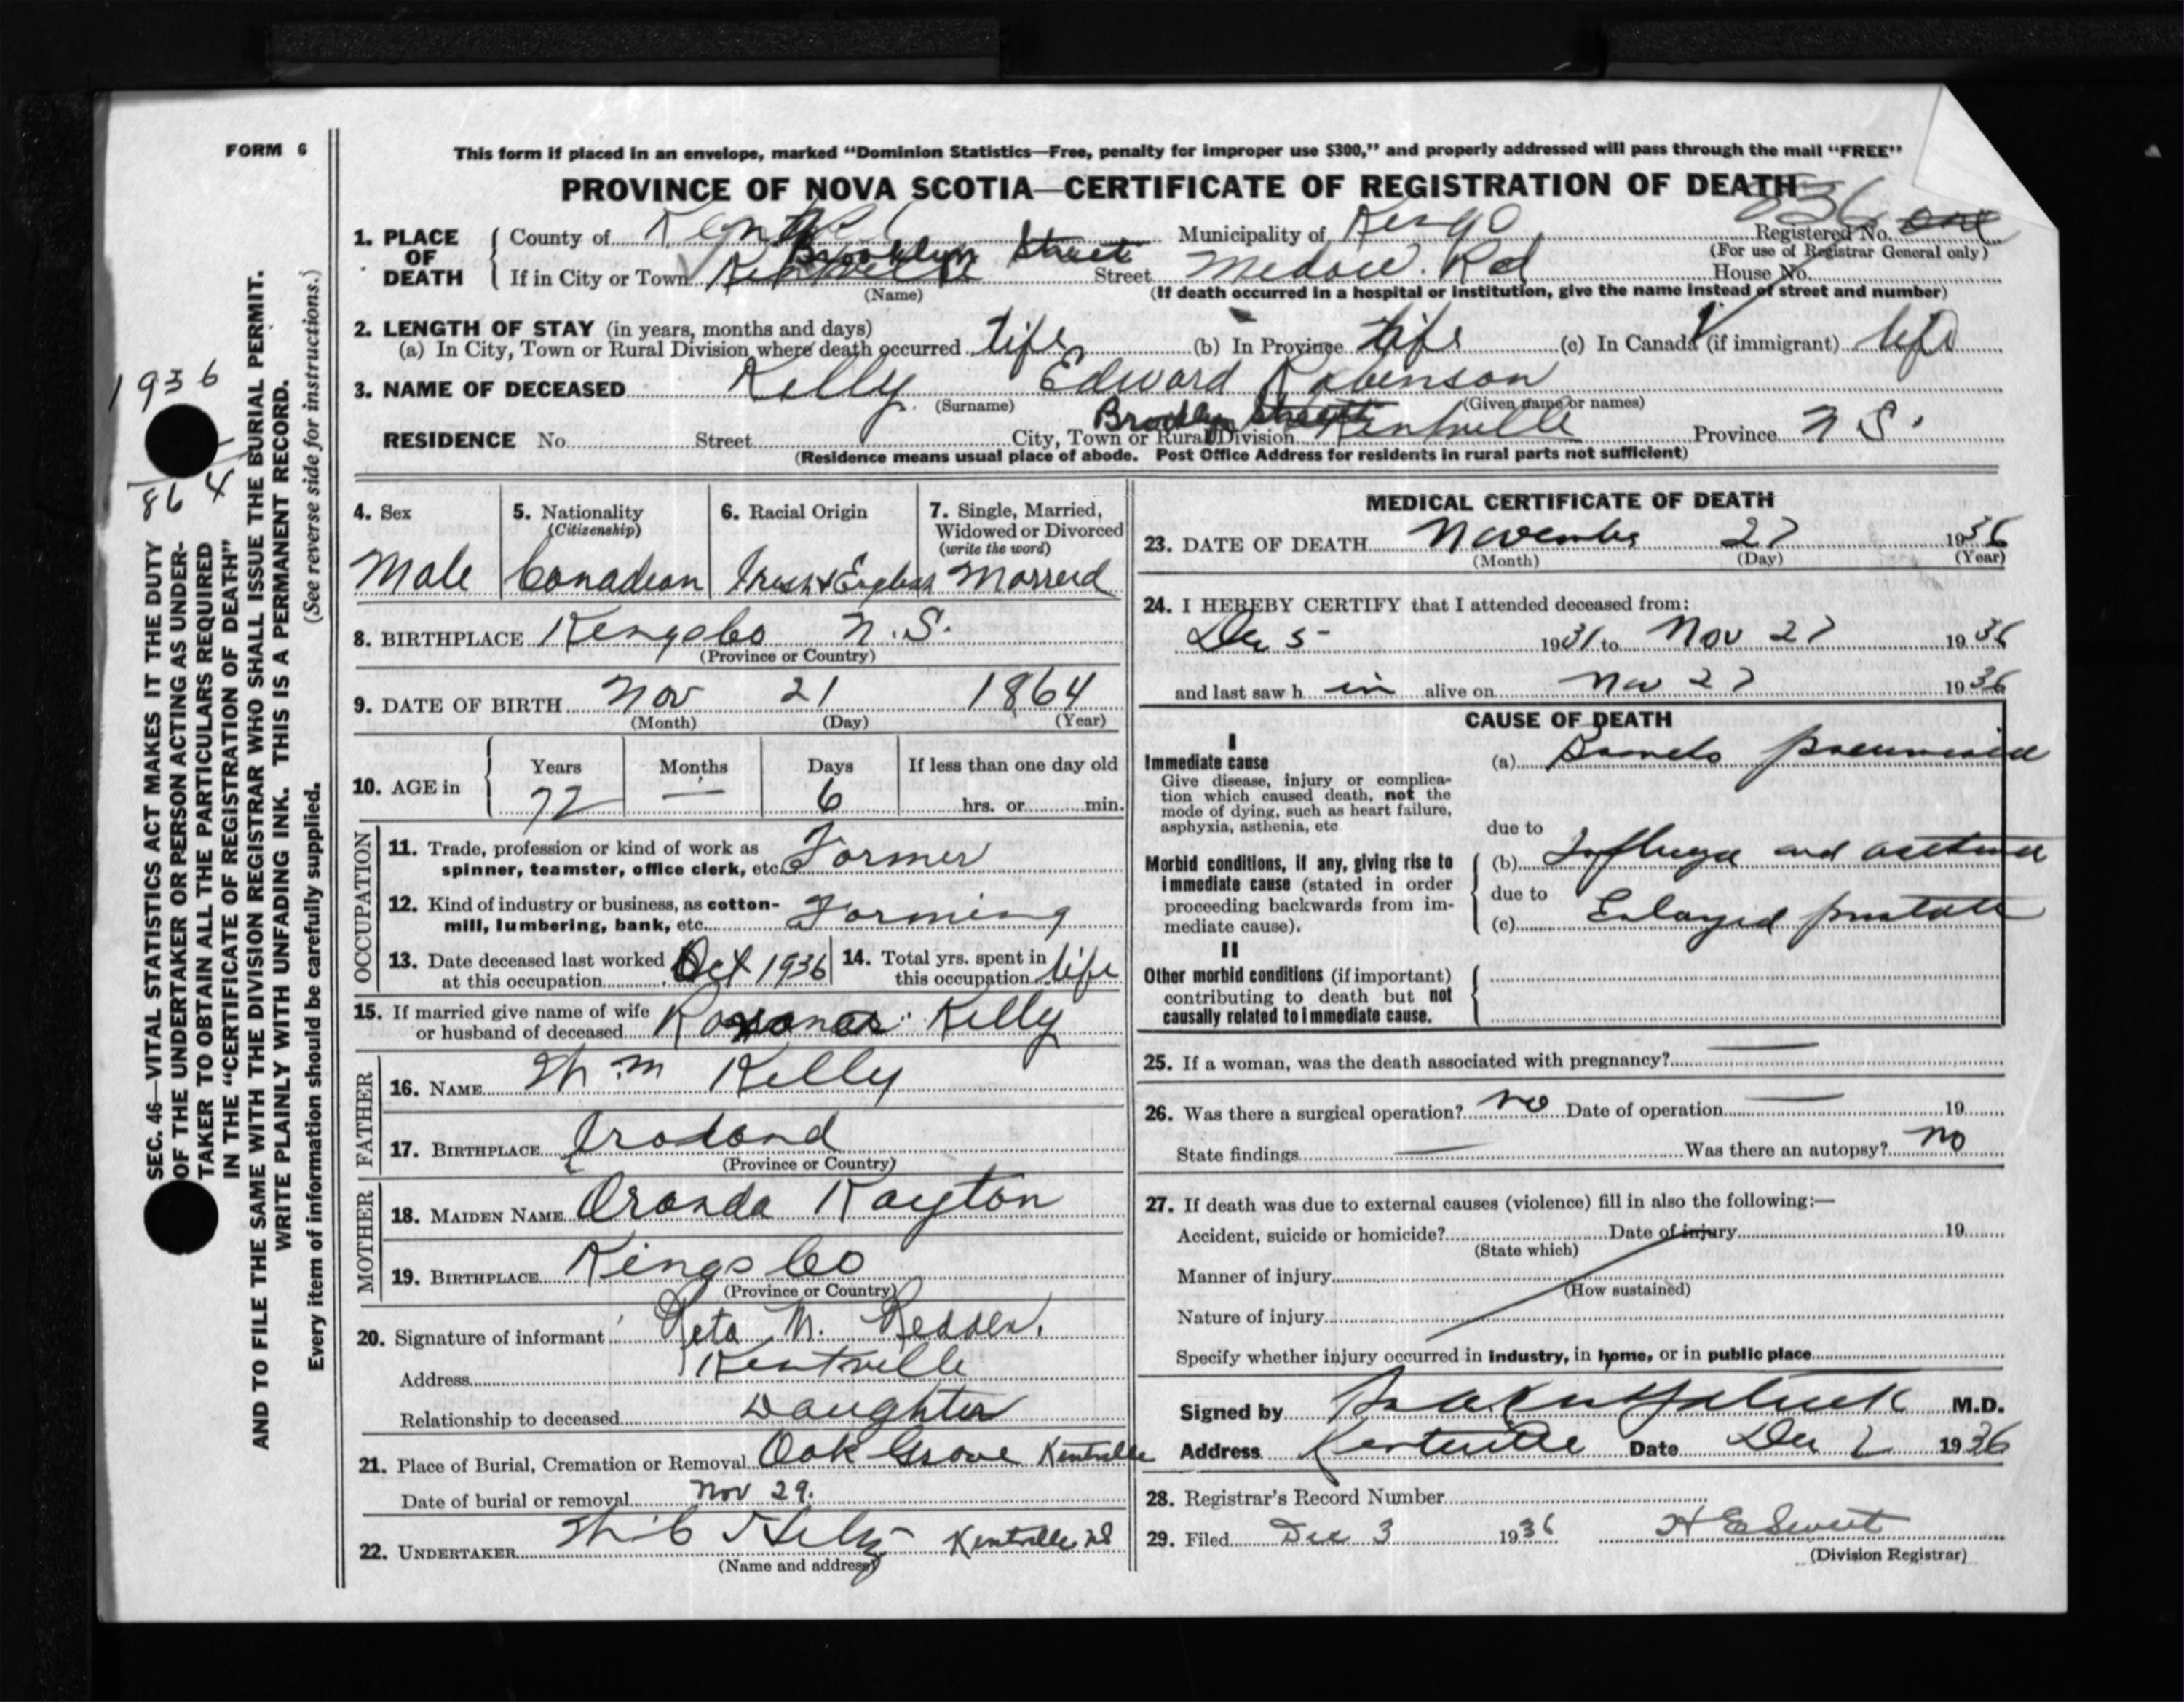 FORM 6
This form if placed in an envelope, marked “Dominion Statistics—Free, penalty for improper use $300,” and properly addressed will pass through the mail “FREE”
PROVINCE OF NOVA SCOTIA—CERTIFICATE OF REGISTRATION OF DEATH
1. PLACE OF DEATH
County of Municipality of Kings Registered No. one
836
(For use of Registrar General only)
Brooklyn Street
If in City or Town Kentville Street Medow. Rd House No.
(Name) (If death occurred in a hospital or institution, give the name instead of street and number)
2. LENGTH OF STAY (in years, months and days)
(a) In City, Town or Rural Division where death occurred life (b) In Province life (c) In Canada (if immigrant) life
3. NAME OF DECEASED Kelly Edward Robinson
(Surname) (Given name or names)
Brooklyn Street
RESIDENCE No. Street City, Town or Rural Division Kentville Province N S.
(Residence means usual place of abode. Post Office Address for residents in rural parts not sufficient)
4. Sex
Male
5. Nationality
(Citizenship)
Canadian
6. Racial Origin
Irish & English
7. Single, Married,
Widowed or Divorced
(write the word)
Marreid
8. BIRTHPLACE Kings Co N.S.
(Province or Country)
9. DATE OF BIRTH Nov 21 1864
(Month) (Day) (Year)
10. AGE in
Years Months Days If less than one day old
72 — 6 hrs. or min.
OCCUPATION
11. Trade, profession or kind of work as
spinner, teamster, office clerk, etc. Farmer
12. Kind of industry or business, as cotton-
mill, lumbering, bank, etc. Farming
13. Date deceased last worked
at this occupation Oct 1936
14. Total yrs. spent in
this occupation life
15. If married give name of wife
or husband of deceased Kelly
FATHER
16. NAME Wm Kelly
17. BIRTHPLACE
(Province or Country)
MOTHER
18. MAIDEN NAME
19. BIRTHPLACE Kings Co
(Province or Country)
20. Signature of informant Reta M. Redden.
Address Kentville
Relationship to deceased Daughter
21. Place of Burial, Cremation or Removal Oak Grove Kentville
Date of burial or removal Nov 29.
22. UNDERTAKER Kentville NS
(Name and address)
MEDICAL CERTIFICATE OF DEATH
23. DATE OF DEATH November 27 1936
(Month) (Day) (Year)
24. I HEREBY CERTIFY that I attended deceased from:
Dec 5 1931 to Nov 27 1936
and last saw h im alive on Nov 27 1936
CAUSE OF DEATH
I
Immediate cause
Give disease, injury or complica-
tion which caused death, not the
mode of dying, such as heart failure,
asphyxia, asthenia, etc
(a) Broncho pneumonia
due to
Morbid conditions, if any, giving rise to
immediate cause (stated in order
proceeding backwards from im-
mediate cause).
(b) Influenza and asthma
due to
(c) Enlarged prostate
II
Other morbid conditions (if important)
contributing to death but not
causally related to immediate cause.
25. If a woman, was the death associated with pregnancy? —
26. Was there a surgical operation? no Date of operation — 19
State findings — Was there an autopsy? no
27. If death was due to external causes (violence) fill in also the following:—
Accident, suicide or homicide? Date of injury 19
(State which)
Manner of injury
(How sustained)
Nature of injury
Specify whether injury occurred in industry, in home, or in public place
Signed by M.D.
Address Kentville Date Dec 2 1936
28. Registrar's Record Number
29. Filed Dec 3 1936
(Division Registrar)
1936
86 4
SEC. 46—VITAL STATISTICS ACT MAKES IT THE DUTY
OF THE UNDERTAKER OR PERSON ACTING AS UNDER-
TAKER TO OBTAIN ALL THE PARTICULARS REQUIRED
IN THE “CERTIFICATE OF REGISTRATION OF DEATH”
AND TO FILE THE SAME WITH THE DIVISION REGISTRAR WHO SHALL ISSUE THE BURIAL PERMIT.
WRITE PLAINLY WITH UNFADING INK. THIS IS A PERMANENT RECORD.
Every item of information should be carefully supplied. (See reverse side for instructions.)